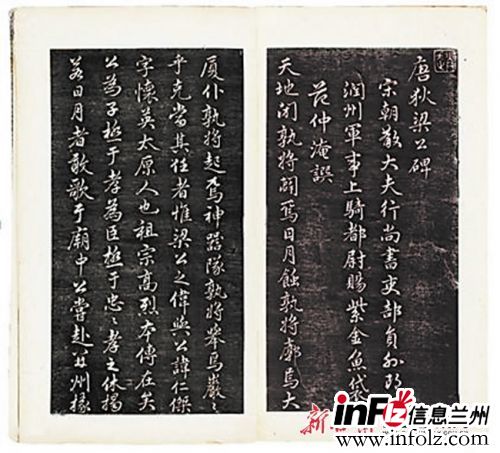 唐狄梁公碑
宋朝散大夫行尚書吏部員外郎
潤州軍事上騎都尉賜紫金魚袋
范仲淹譔
天地閉孰將闢焉日月蝕孰將廓焉大
廈仆孰將起焉神器隊孰將舉焉巖〻
乎克當其任者惟梁公之偉與公諱仁傑
字懷英太原人也祖宗高烈本傳在矣
公為子極于孝為臣極于忠〻孝之休揭
若日月者敢歌于廟中公嘗赴并州掾
信息兰州
www.infolz.com